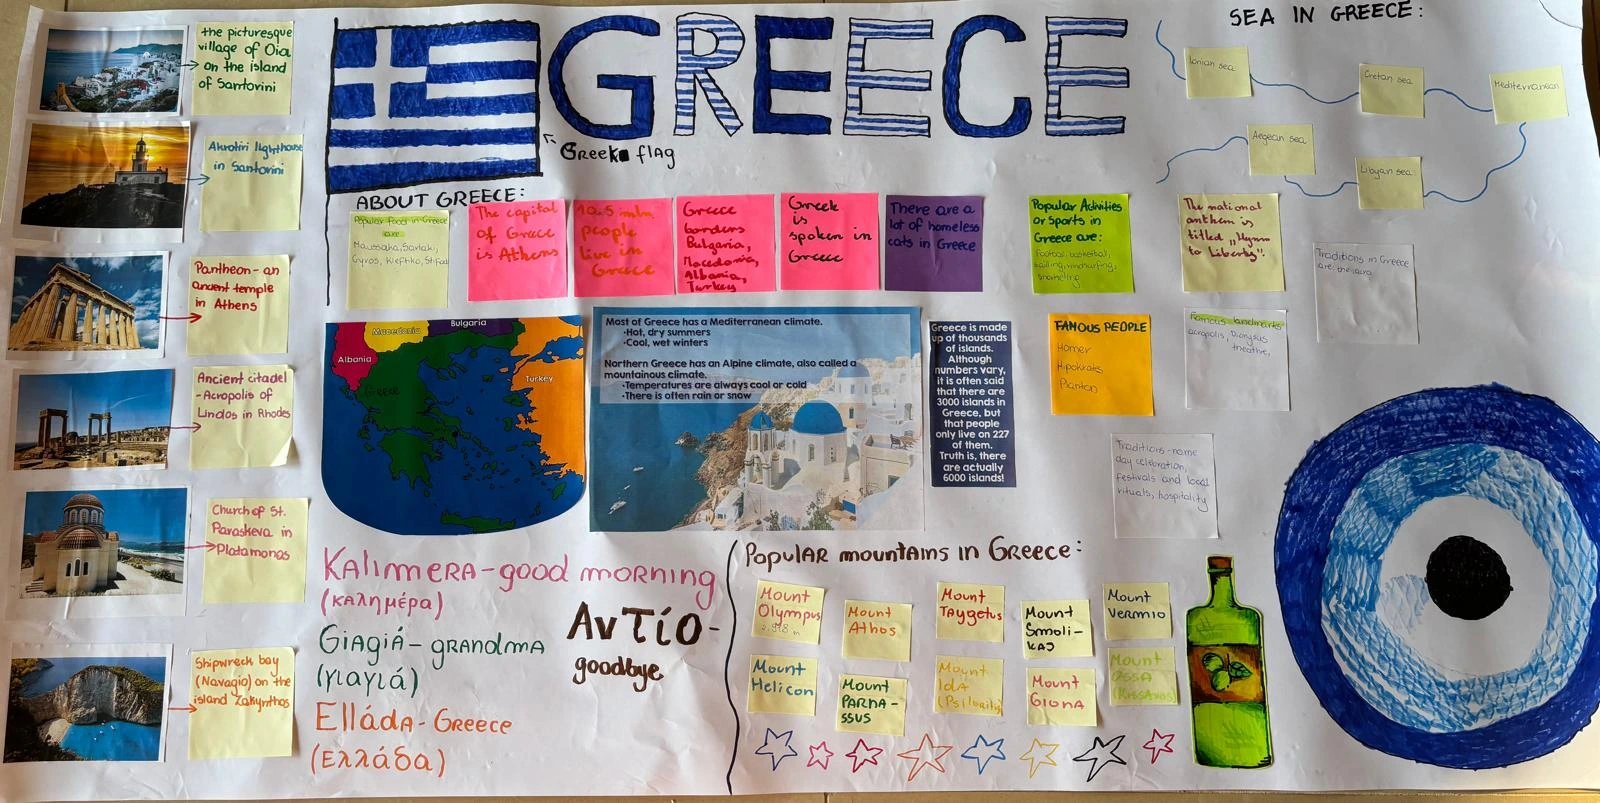 the picturesque
village of Oia
on the island
of Santorini
Akrotiri lighthouse
in Santorini
Pantheon - an
ancient temple
in Athens
Ancient citadel
- Acropolis of
Lindos in Rhodes
Church of St.
Paraskeva in
Platamonas
Shipwreck bay
(Navagio) on the
island Zakynthos
GREECE
Greek flag
SEA IN GREECE:
Ionian sea
Cretan sea
Mediterranean
Aegean sea
Libyan sea
ABOUT GREECE:
Popular food in Greece
are
Moussaka, Suvlaki,
Gyros, Kleftiko, Stifado
The capital
of Greece
is Athens
10.5 mln
people
live in
Greece
Greece
borders
Bulgaria,
Macedonia,
Albania,
Turkey
Greek
is
spoken in
Greece
There are a
lot of homeless
cats in Greece
Popular Activities
or Sports in
Greece are:
Football, basketball,
sailing, windsurfing,
snorkeling
The national
anthem is
titled „Hymn
to Liberty".
Traditions in Greece
are:
Macedonia
Bulgaria
Albania
Greece
Turkey
Most of Greece has a Mediterranean climate.
•Hot, dry summers
•Cool, wet winters
Northern Greece has an Alpine climate, also called a
mountainous climate.
•Temperatures are always cool or cold
•There is often rain or snow
Greece is made
up of thousands
of islands.
Although
numbers vary,
it is often said
that there are
3000 islands in
Greece, but
that people
only live on 227
of them.
Truth is, there
are actually
6000 islands!
FAMOUS PEOPLE
Homer
Hipokrates
Planton
Famous landmarks
acropolis, Dionysus
theathre,
Traditions - name
day celebration,
festivals and local
rituals, hospitality
Kalimera - good morning
(καλημέρα)
Giagiá - grandma
(γιαγιά)
Elláda - Greece
(Ελλάδα)
Αντίο -
goodbye
Popular mountains in Greece:
Mount
Olympus
2.918 m
Mount
Athos
Mount
Taygetus
Mount
Smoli-
kas
Mount
Vermio
Mount
Helicon
Mount
Parna-
ssus
Mount
Ida
(Psiloritis)
Mount
Giona
Mount
Ossa
(Kissavos)